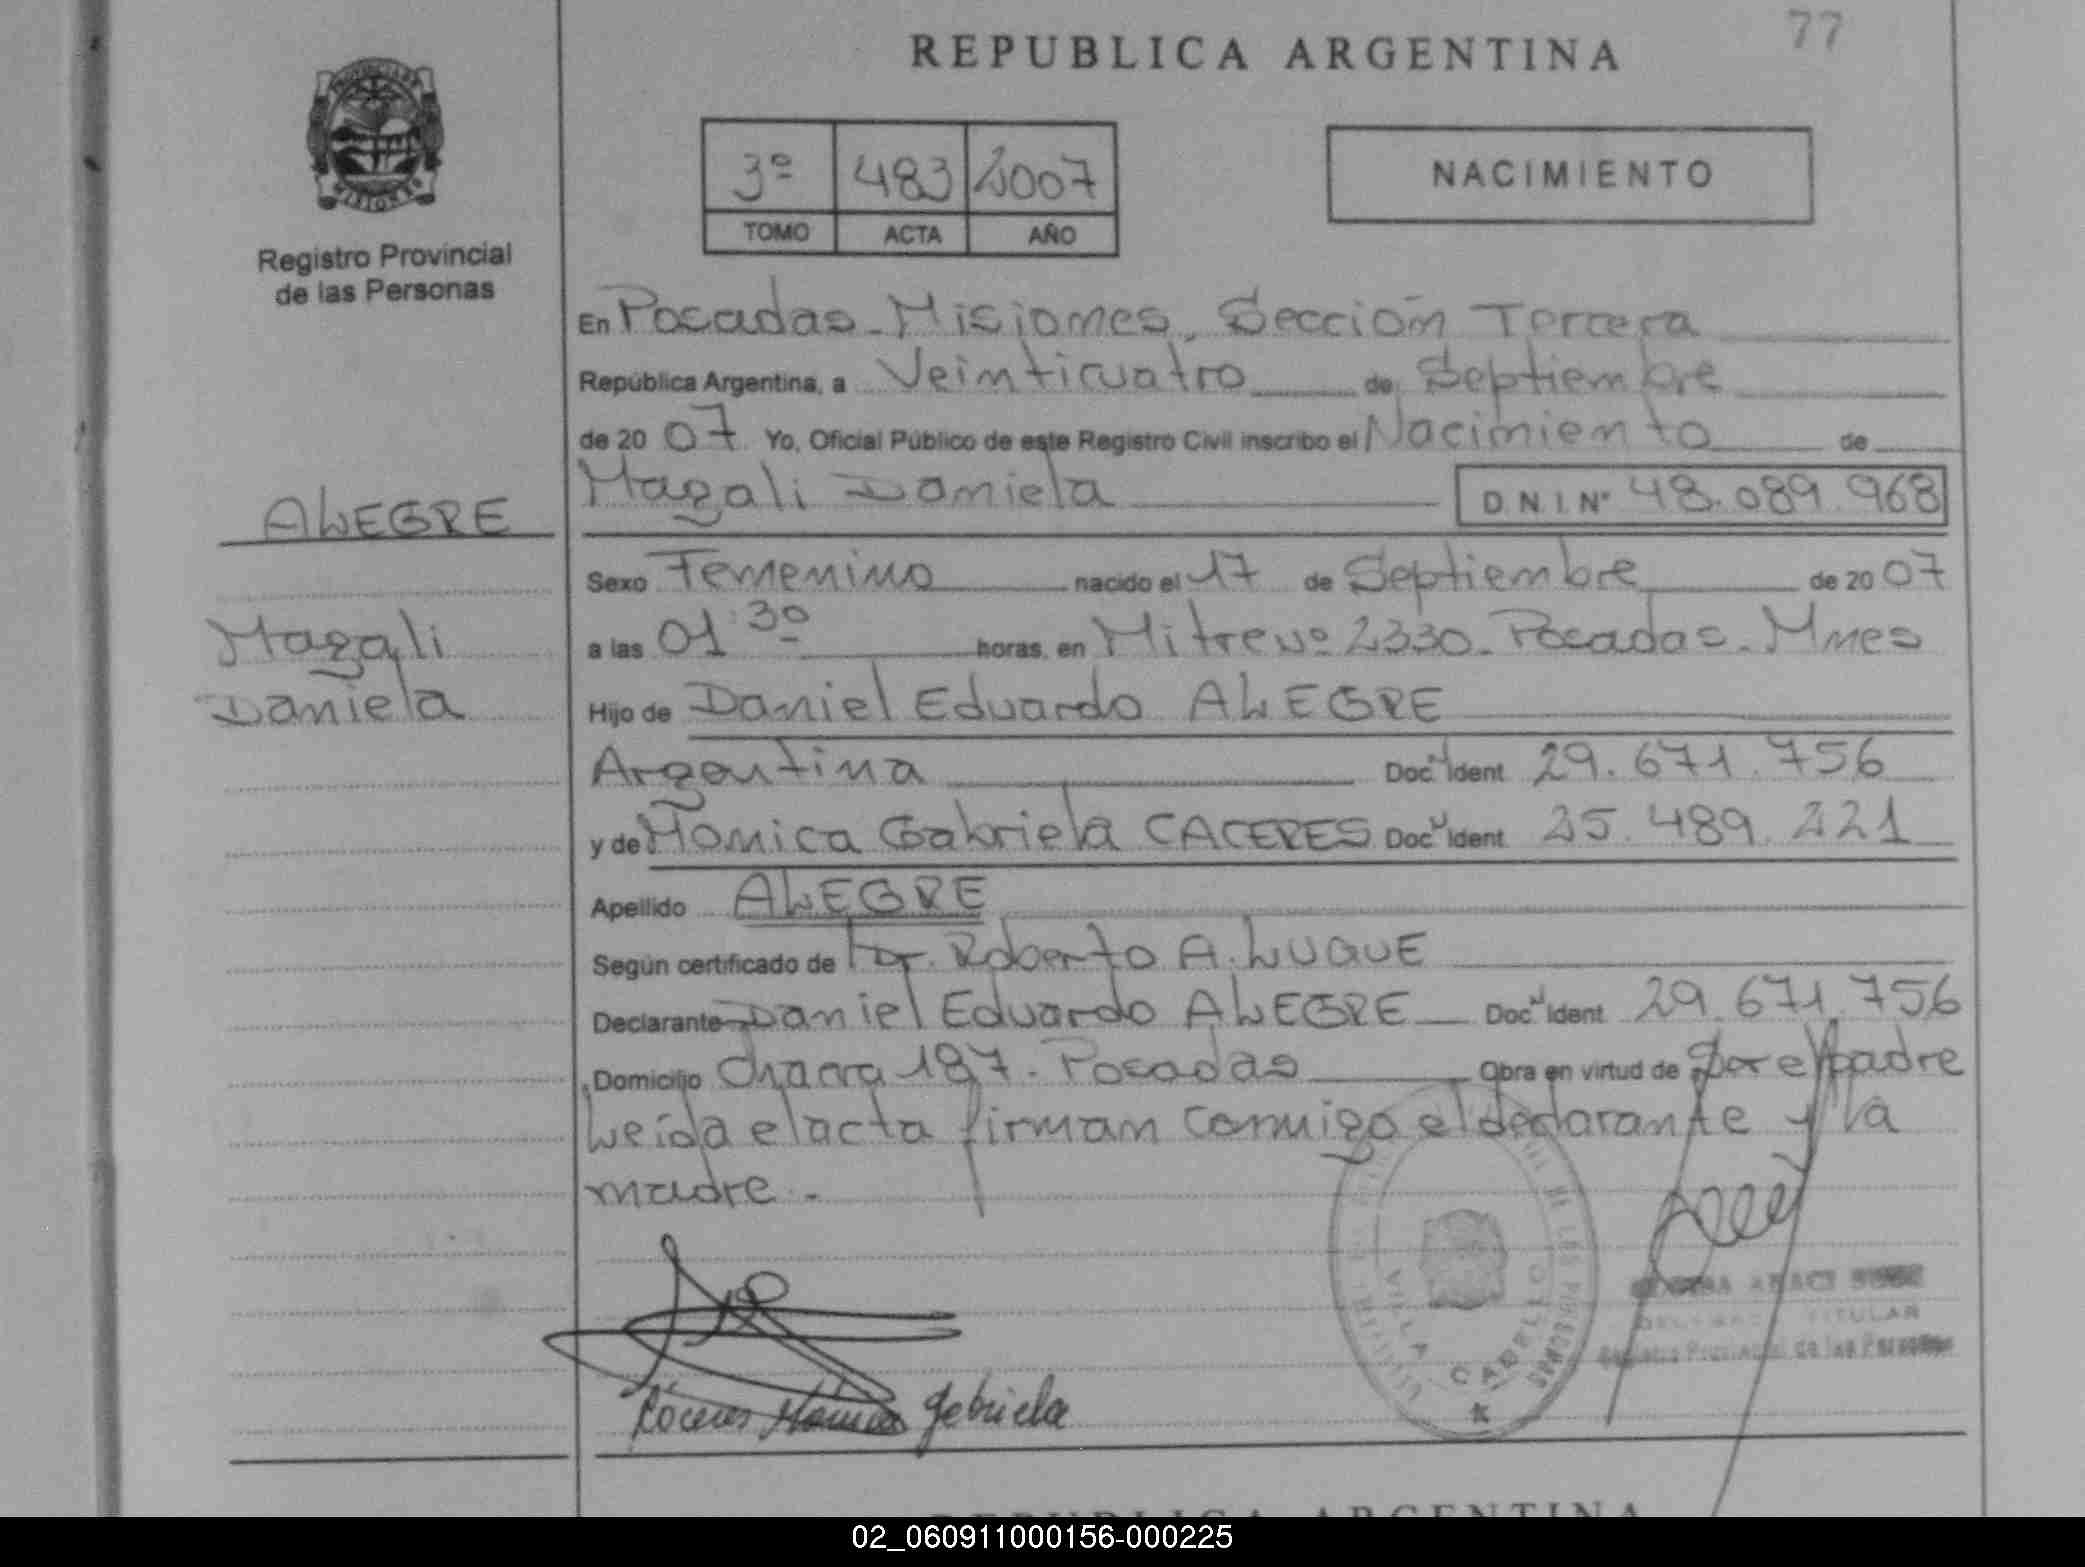 77
REPUBLICA ARGENTINA
PROVINCIA DE
MISIONES
Registro Provincial
de las Personas
3º 483 2007
TOMO ACTA AÑO
NACIMIENTO
En Posadas - Misiones, Sección Tercera
República Argentina, a Veinticuatro de Septiembre
de 20 07 Yo, Oficial Público de este Registro Civil inscribo el Nacimiento de
Magali Daniela D.N.I.Nº 48.089.968
ALEGRE
Magali
Daniela
Sexo Femenino nacido el 17 de Septiembre de 20 07
a las 01:30 horas, en Mitre Nº 2330 - Posadas - Mnes
Hijo de Daniel Eduardo ALEGRE
Argentina Doc. Ident 29.671.756
y de Mónica Gabriela CACERES Doc. Ident. 25.489.221
Apellido ALEGRE
Según certificado de Dr. Roberto A. LUQUE
Declarante Daniel Eduardo ALEGRE Doc. Ident 29.671.756
Domicilio Chacra 187 - Posadas Obra en virtud de Ser el padre
Leída el acta firman conmigo el declarante y la
madre.
VILLA CABELLO
DE LAS PERSONAS
TITULAR
Registro Provincial de las Personas
Cáceres Mónica Gabriela
REPUBLICA ARGENTINA
02_060911000156-000225